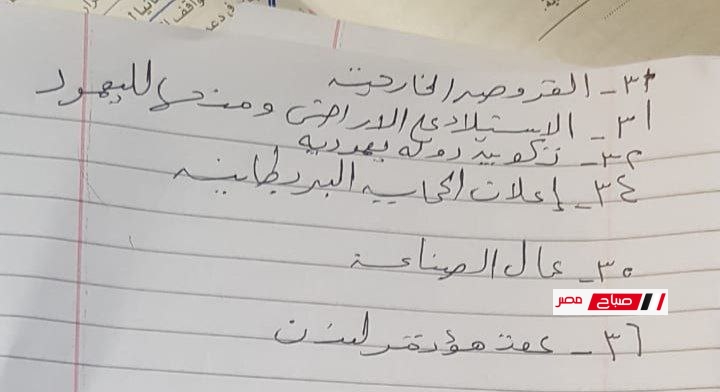 ٣٣- القروض الخارجية
٣١- الاستيلاء علي الاراضى ومنحها لليهود
٣٢- تكوين دولة يهودية
٣٤- إعلان الحماية البريطانية
٣٥- عمال الصناعة
صباح مصر
٣٦- عقد مؤتمر لندن